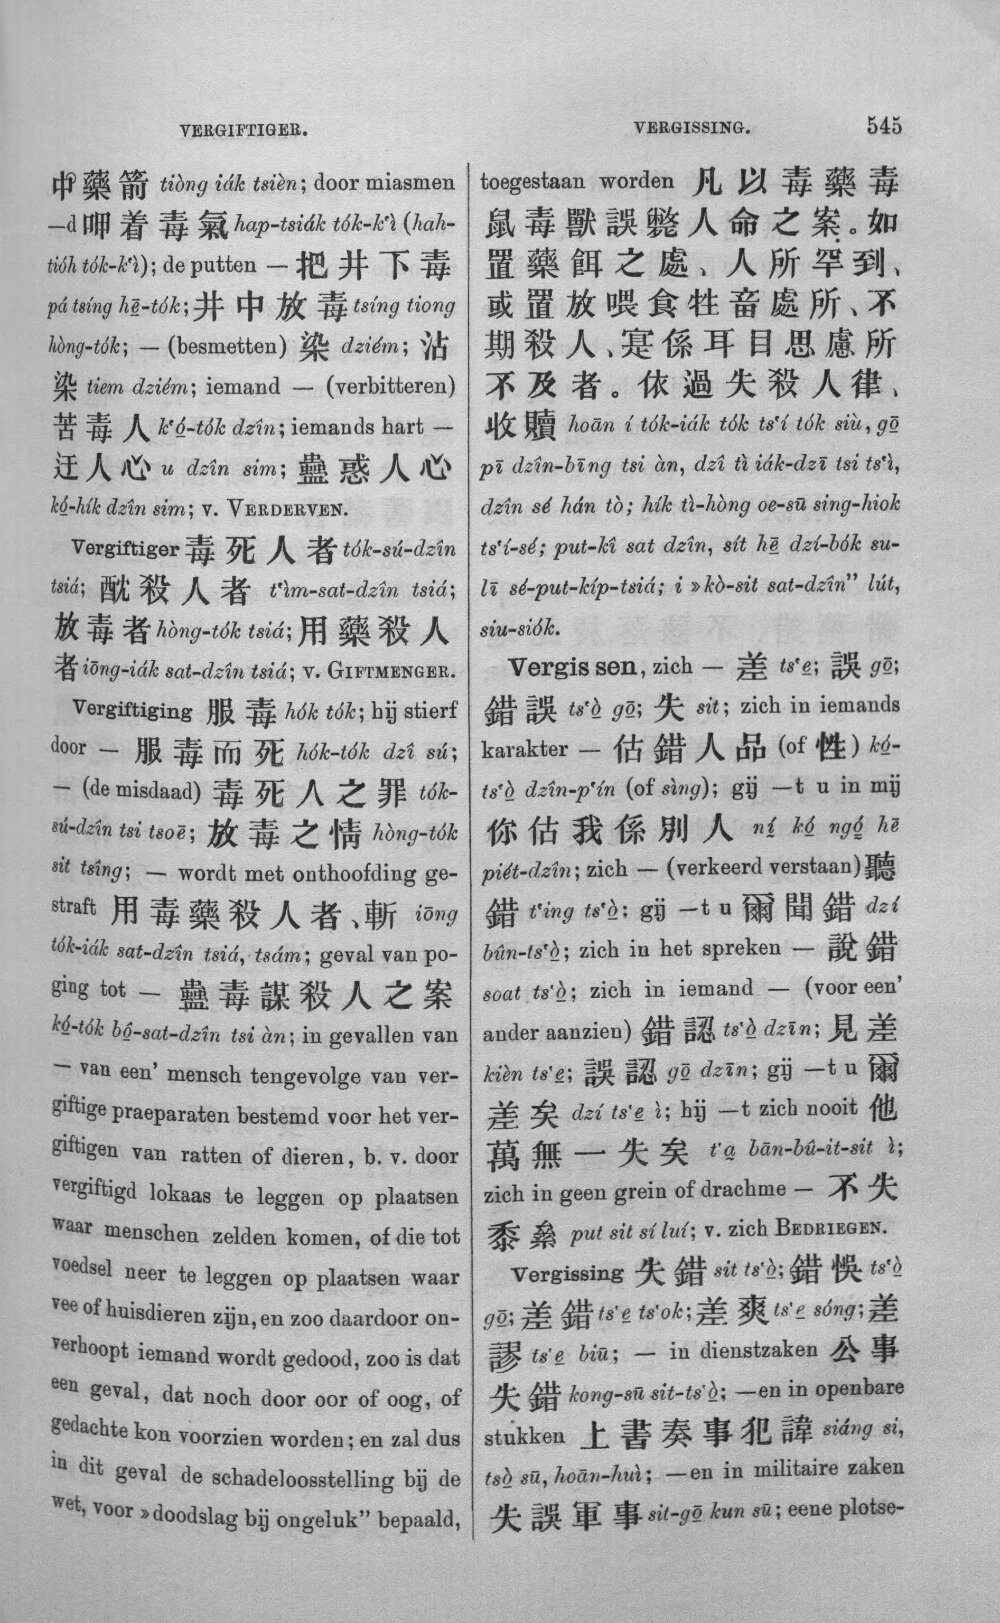 VERGIFTIGER.
中藥箭 tiòng iák tsièn; door miasmen
—d呷着毒氣 hap-tsiák tók-k‘ì (hah-
tióh tók-k‘ì); de putten — 把井下毒
pá tsíng hē-tók; 井中放毒 tsíng tiong
hòng-tók; — (besmetten) 染 dziém; 沾
染 tiem dziém; iemand — (verbitteren)
苦毒人 k‘ó̱-tók dzîn; iemands hart —
迂人心 u dzîn sim; 蠱惑人心
kó̱-hík dzîn sim; v. VERDERVEN.
Vergiftiger 毒死人者 tók-sú-dzîn
tsiá; 酖殺人者 t‘ìm-sat-dzîn tsiá;
放毒者 hòng-tók tsiá; 用藥殺人
者 iōng-iák sat-dzîn tsiá; v. GIFTMENGER.
Vergiftiging 服毒 hók tók; hij stierf
door — 服毒而死 hók-tók dzî sú;
— (de misdaad) 毒死人之罪 tók-
sú-dzîn tsi tsoē; 放毒之情 hòng-tók
sit tsîng; — wordt met onthoofding ge-
straft 用毒藥殺人者、斬 iōng
tók-iák sat-dzîn tsiá, tsám; geval van po-
ging tot — 蠱毒謀殺人之案
kó̱-tók bó̱-sat-dzîn tsi àn; in gevallen van
— van een’ mensch tengevolge van ver-
giftige praeparaten bestemd voor het ver-
giftigen van ratten of dieren, b. v. door
vergiftigd lokaas te leggen op plaatsen
waar menschen zelden komen, of die tot
voedsel neer te leggen op plaatsen waar
vee of huisdieren zijn, en zoo daardoor on-
verhoopt iemand wordt gedood, zoo is dat
een geval, dat noch door oor of oog, of
gedachte kon voorzien worden; en zal dus
in dit geval de schadeloosstelling bij de
wet, voor »doodslag bij ongeluk” bepaald,
VERGISSING. 545
toegestaan worden 凡以毒藥毒
鼠毒獸誤斃人命之案。如
置藥餌之處、人所罕到、
或置放喂食牲畜處所、不
期殺人、寔係耳目思慮所
不及者。依過失殺人律、
收贖 hoān í tók-iák tók ts‘í tók siù, gō̱
pī dzîn-bīng tsi àn, dzî tì iák-dzī tsi ts‘ì,
dzîn sé hán tò; hík tì-hòng oe-sū sing-hiok
ts‘í-sé; put-kî sat dzîn, sít hē̱ dzí-bók su-
lī sé-put-kíp-tsiá; i »kò-sit sat-dzîn” lút,
siu-siók.
Vergissen, zich — 差 ts‘e̱; 誤 gō̱;
錯誤 ts‘ò̱ gō̱; 失 sit; zich in iemands
karakter — 估錯人品 (of 性) kó̱-
ts‘ò̱ dzîn-p‘ín (of sìng); gij —t u in mij
你估我係別人 ní̱ kó̱ ngó̱ hē
piét-dzîn; zich — (verkeerd verstaan) 聽
錯 t‘ing ts‘ò̱; gij —t u 爾聞錯 dzí
bûn-ts‘ò̱; zich in het spreken — 說錯
soat ts‘ò̱; zich in iemand — (voor een’
ander aanzien) 錯認 ts‘ò̱ dzīn; 見差
kièn ts‘e̱; 誤認 gō̱ dzīn; gij —t u 爾
差矣 dzí ts‘e̱ ì; hij —t zich nooit 他
萬無一失矣 t‘a̱ bān-bû-it-sit ì;
zich in geen grein of drachme — 不失
黍絫 put sit sí luí; v. zich BEDRIEGEN.
Vergissing 失錯 sit ts‘ò̱; 錯悞 ts‘ò̱
gō̱; 差錯 ts‘e̱ ts‘ok; 差爽 ts‘e̱ sóng; 差
謬 ts‘e̱ biū; — in dienstzaken 公事
失錯 kong-sū sit-ts‘ò̱; —en in openbare
stukken 上書奏事犯諱 siáng si,
tsò̱ sū, hoān-huì; —en in militaire zaken
失誤軍事 sit-gō̱ kun sū; eene plotse-